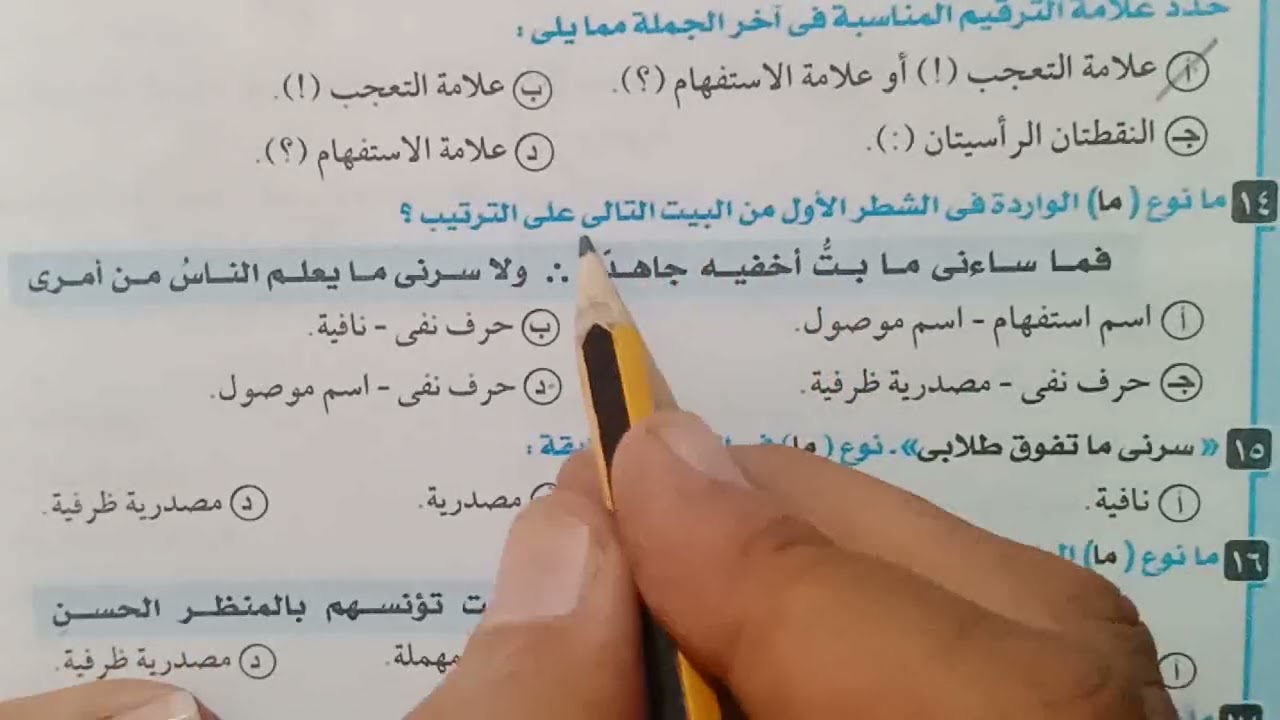 حدد علامة الترقيم المناسبة فى آخر الجملة مما يلى :
أ علامة التعجب (!) أو علامة الاستفهام (؟). ب علامة التعجب (!).
جـ النقطتان الرأسيتان (:). د علامة الاستفهام (؟).
١٤ ما نوع (ما) الواردة فى الشطر الأول من البيت التالى على الترتيب ؟
فما ساءنى ما بتُّ أخفيه ∴ ولا سرنى ما يعلم الناسُ من أمرى
أ اسم استفهام - اسم موصول. ب حرف نفى - نافية.
جـ حرف نفى - مصدرية ظرفية. د حرف نفى - اسم موصول.
١٥ «سرنى ما تفوق طلابى». نوع (ما)
أ نافية. مصدرية. د مصدرية ظرفية.
١٦ ما نوع (ما)
تؤنسهم بالمنظر الحسن
أ مهملة. د مصدرية ظرفية.